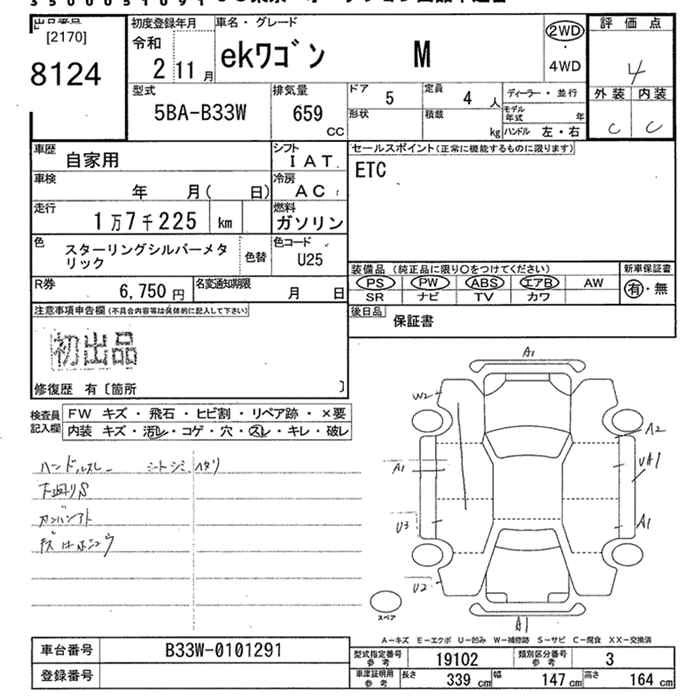 出品番号
[2170]
8124
初度登録年月
令和
2年 11月
車名・グレード
ekワゴン M
2WD
・
4WD
評価点
4
外装 内装
C C
型式
5BA-B33W
排気量
659
CC
ドア
5
定員
4 人
形状
積載
kg
ディーラー・並行
モデル年式 年
ハンドル 左・右
車歴
自家用
シフト
IAT
車検
年 月( 日)
冷房
AC
走行
1万7千225 km
燃料
ガソリン
色
スターリングシルバーメタリック
色替
色コード
U25
R券
6,750 円
名変通知期限
月 日
セールスポイント(正常に機能するものに限ります)
ETC
装備品 (純正品に限り○をつけてください)
PS PW ABS エアB AW
SR ナビ TV カワ
新車保証書
有・無
後日品
保証書
注意事項申告欄(不具合内容等は具体的に記入して下さい)
初出品
修復歴 有〔箇所 〕
検査員記入欄
FW キズ・飛石・ヒビ割・リペア跡・×要
内装 キズ・汚レ・コゲ・穴・スレ・キレ・破レ
ハンドルスレ シートシミ、ヘタリ
下廻りS
A1
W2
A2
A1
UA1
U3
A1
U2
A1
スペア
A−キズ E−エクボ U−凹み W−補修跡 S−サビ C−腐食 XX−交換済
車台番号
B33W-0101291
登録番号
型式指定番号 参考
19102
類別区分番号 参考
3
車庫証明用 参考
長さ 339 cm 幅 147 cm 高さ 164 cm